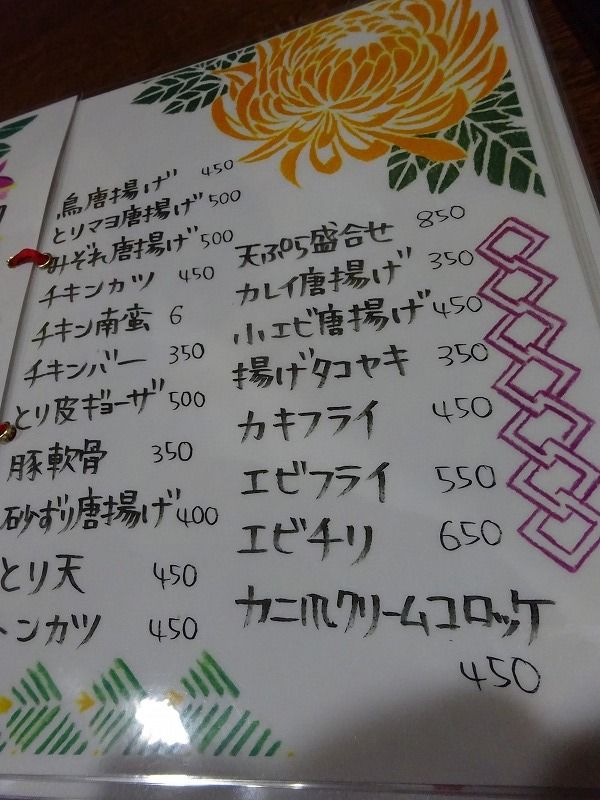 鳥唐揚げ 450
とりマヨ唐揚げ 500
みぞれ唐揚げ 500
チキンカツ 450
チキン南蛮 6
チキンバー 350
とり皮ギョーザ 500
豚軟骨 350
砂ずり唐揚げ 400
とり天 450
トンカツ 450
天ぷら盛合せ 850
カレイ唐揚げ 350
小エビ唐揚げ 450
揚げタコヤキ 350
カキフライ 450
エビフライ 550
エビチリ 650
カニ爪クリームコロッケ
450